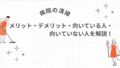 病院の清掃
メリット・デメリット・向いている人・
向いていない人を解説！